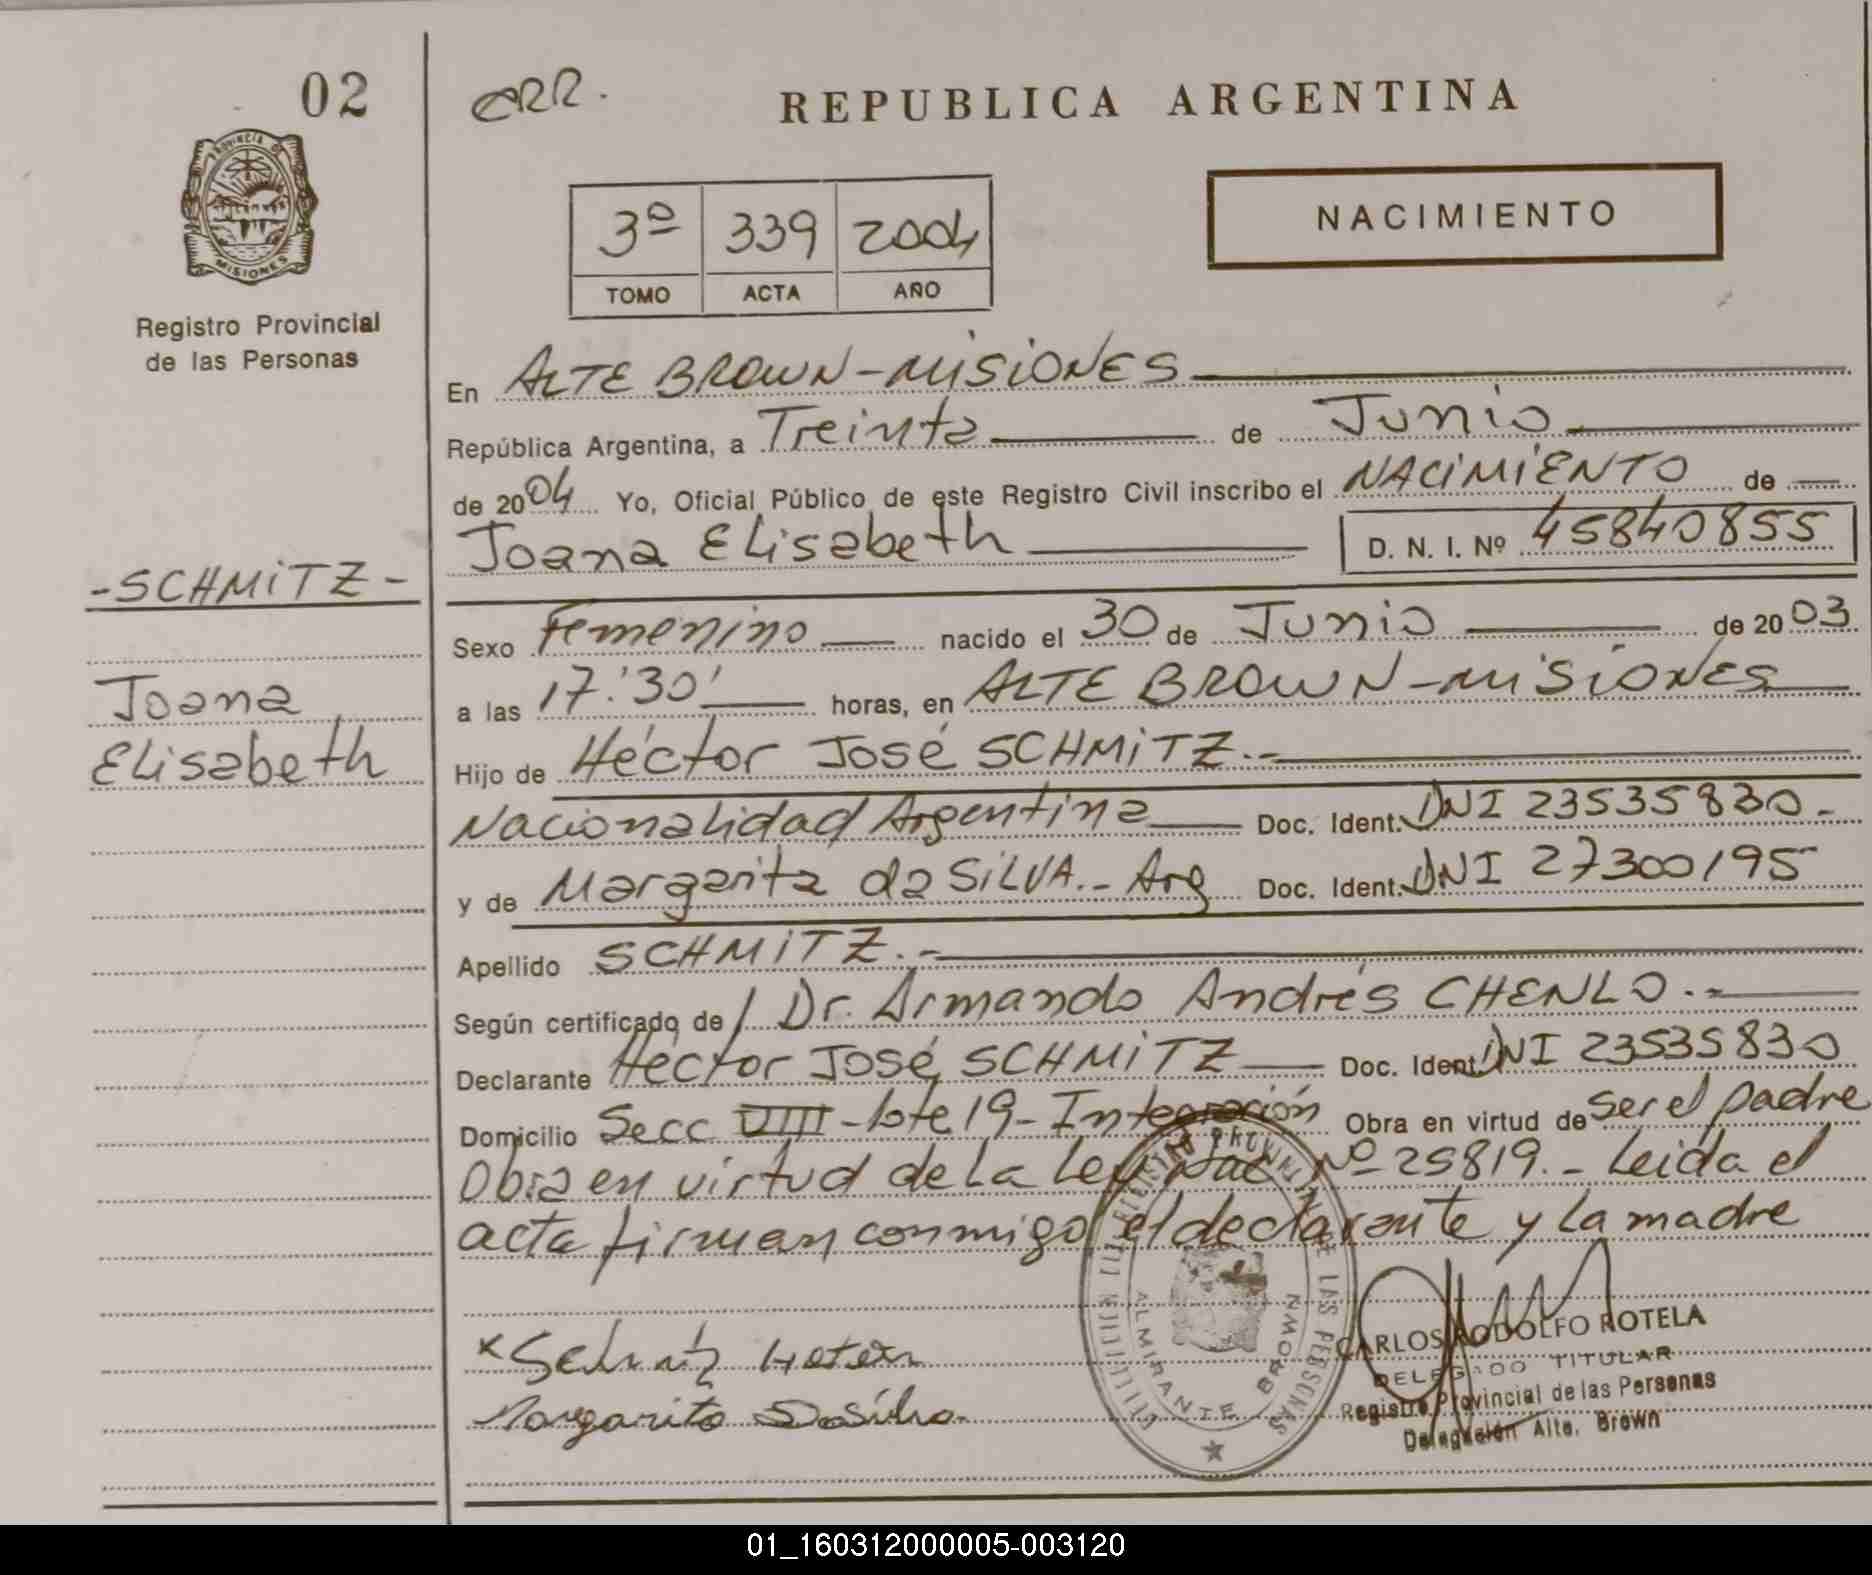 02
CRR.
REPUBLICA ARGENTINA
PROVINCIA DE
MISIONES
Registro Provincial
de las Personas
3º 339 2004
TOMO ACTA AÑO
NACIMIENTO
En ALTE BROWN-MISIONES
República Argentina, a Treinta de Junio
de 2004 Yo, Oficial Público de este Registro Civil inscribo el NACIMIENTO de
Joana Elisabeth D. N. I. Nº 45840855
-SCHMITZ-
Joana
Elisabeth
Sexo Femenino nacido el 30 de Junio de 2003
a las 17:'30' horas, en ALTE BROWN-MISIONES
Hijo de Héctor José SCHMITZ.-
Nacionalidad Argentina Doc. Ident. DNI 23535830.-
y de Margarita da SILVA.- Arg Doc. Ident. DNI 27300195
Apellido SCHMITZ.-
Según certificado de / Dr. Armando Andrés CHENLO.-
Declarante Héctor José SCHMITZ Doc. Ident. DNI 23535830
Domicilio Secc VIII - lote 19 - Integración Obra en virtud de ser el padre
Obra en virtud de la Ley Nac Nº 25819.- Leida el
acta firman conmigo el declarante y la madre
ALMIRANTE BROWN
CARLOS RODOLFO ROTELA
DELEGADO TITULAR
Registro Provincial de las Personas
Delegación Alte. Brown
Margarita Dasilva
01_160312000005-003120